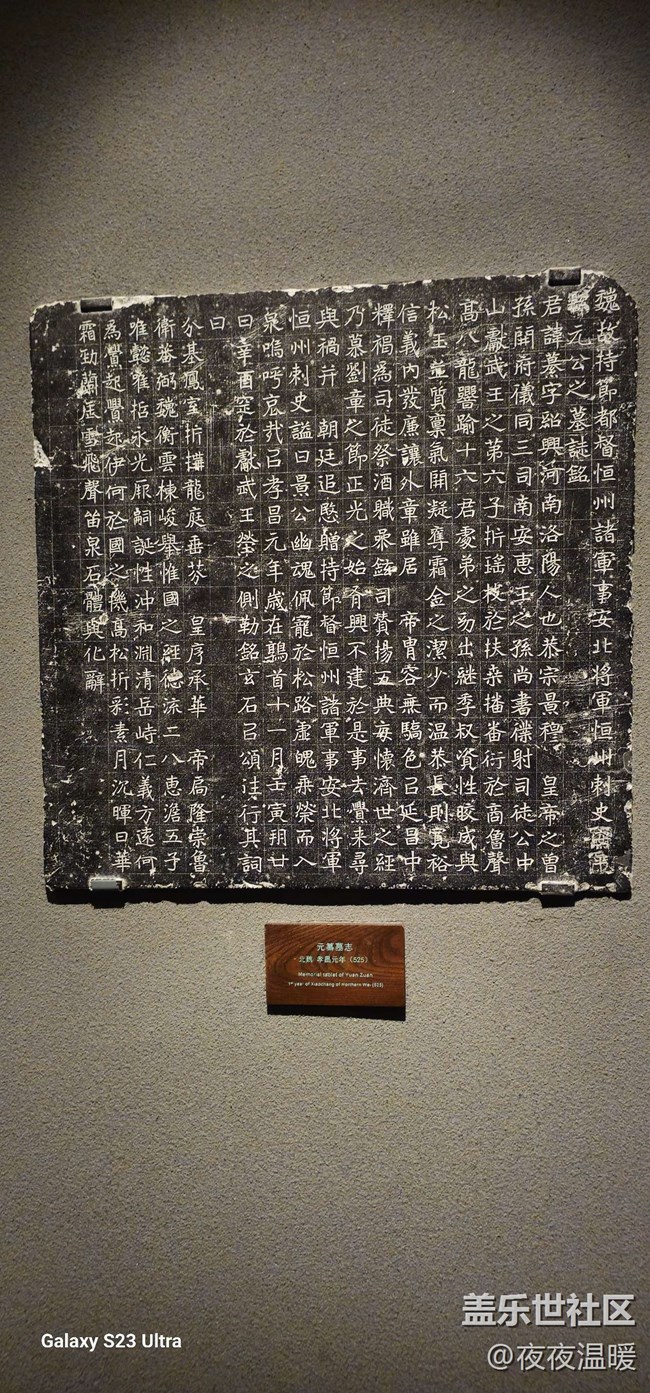 魏故持節都督恒州諸軍事安北將軍恒州刺史
縣元公之墓誌銘
君諱纂字紹興河南洛陽人也恭宗景穆　皇帝之曾
孫開府儀同三司南安惠王之孫尚書僕射司徒公中
山獻武王之第六子折瑤枝於扶桒播番衍於商魯聲
髙八龍譽踰十六君處弟之少出繼季叔資性咬成與
松玉並質稟氣開凝摩霜金之潔少而温恭長則寬裕
信義內發廉讓外章雖居　帝胄容無驕色召延昌中
釋褐為司徒祭酒職乘鉉司賛揚五典每懷濟世之經
乃慕劉章之節正光之始脊興不建於是事去舋来尋
與禍并　朝廷追愍贈持節督恒州諸軍事安北將軍
恒州刺史謚曰景公幽魂佩寵於松路虛魄乘榮而入
泉嗚呼哀哉召孝昌元年歲在鶉首十一月壬寅朔廿
日辛酉窆於獻武王塋之側勒銘玄石召頌往行其詞
曰
分基鳳室折搆龍庭垂芬　皇序承華　帝扃隆崇魯
衛蕃弼魏衡雲棟峻舉惟國之經德流二八惠澹五子
唯懿雅括永光厥嗣誕性沖和淵清岳峙仁義方遠何
為黨起舋起伊何於國之機髙松折彩素月沉暉日華
霜勁蘭庭雪飛聲笛泉石體與化辭
元纂墓志
北魏 孝昌元年（525）
Memorial tablet of Yuan Zuan
1st year of Xiaochang of Northern Wei (525)
盖乐世社区
Galaxy S23 Ultra
@夜夜温暖